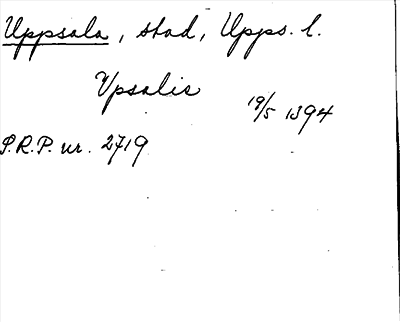 Uppsala, stad, Upps. l.
Upsalis
19/5 1394
P.R.P. nr. 2719